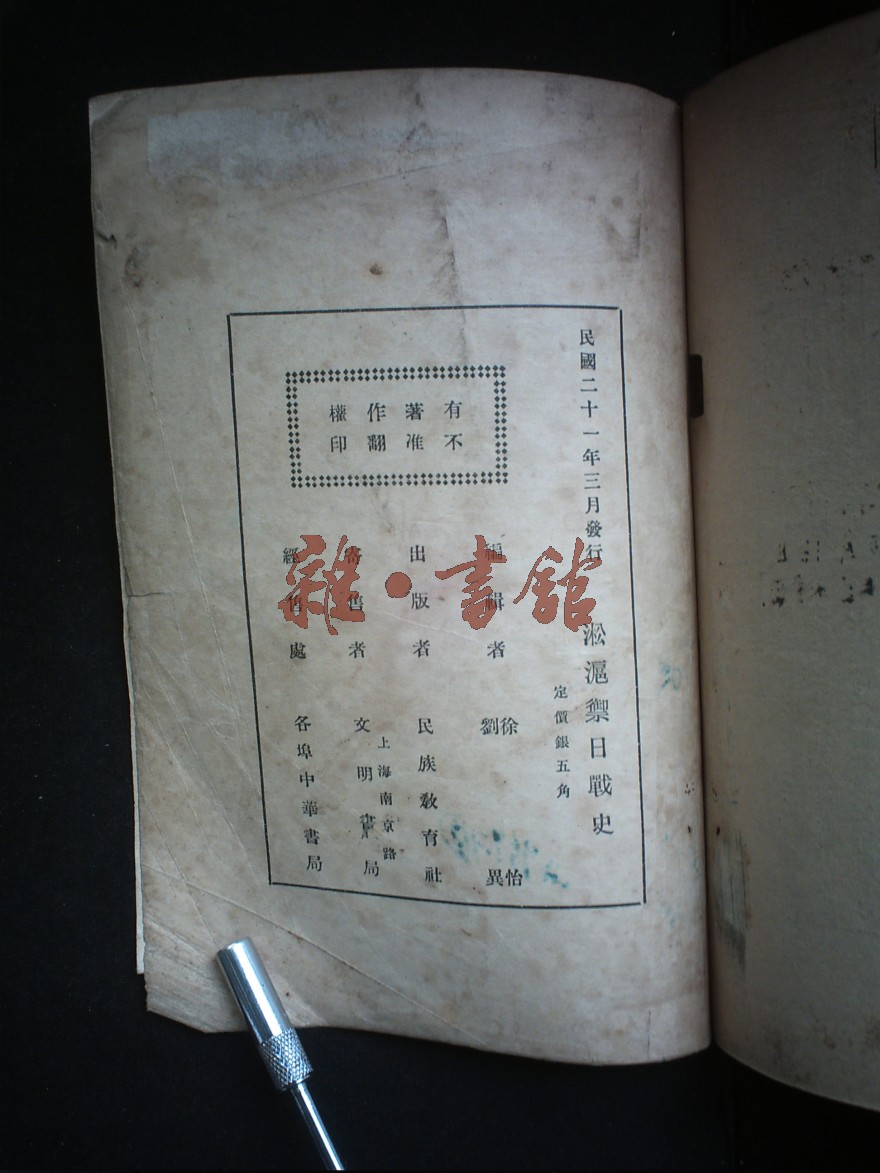 民國二十一年三月發行
淞滬禦日戰史
定價銀五角
有著作權
不准翻印
編輯者 徐怡 劉異
出版者 民族教育社
寄售者 上海南京路 文明書局
經售處 各埠中華書局
雜·書館